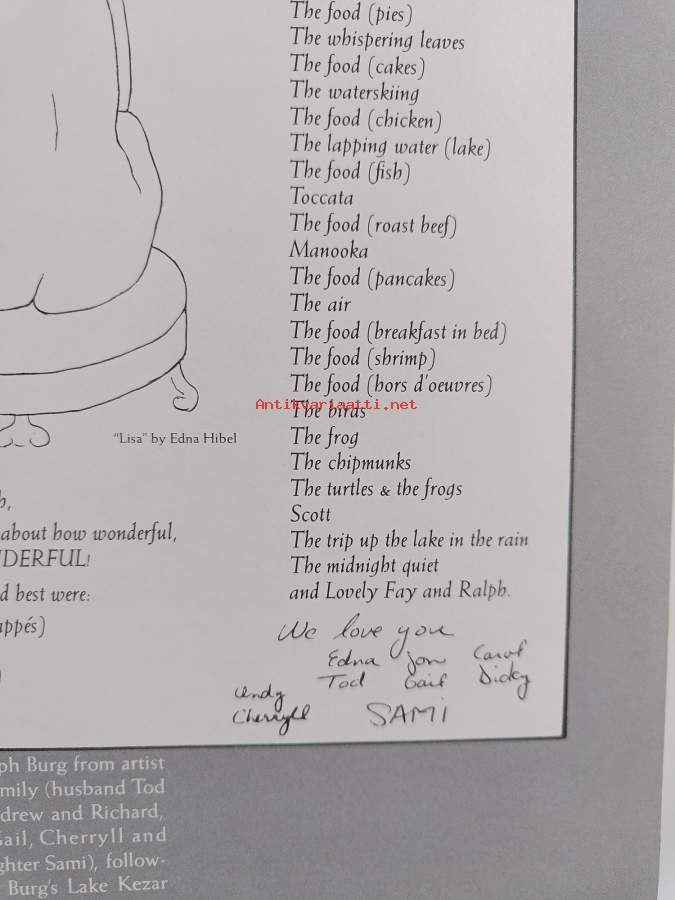 The food (pies)
The whispering leaves
The food (cakes)
The waterskiing
The food (chicken)
The lapping water (lake)
The food (fish)
Toccata
The food (roast beef)
Manooka
The food (pancakes)
The air
The food (breakfast in bed)
The food (shrimp)
The food (hors d'oeuvres)
Antikvariaatti.net
The birds
The frog
The chipmunks
The turtles & the frogs
Scott
The trip up the lake in the rain
The midnight quiet
and Lovely Fay and Ralph.
"Lisa" by Edna Hibel
about how wonderful,
NDERFUL!
d best were:
appés)
We love you
Edna Jon Carol
Tod Gail Dicky
Andy
Cherryll SAMi
ph Burg from artist
mily (husband Tod
drew and Richard,
Gail, Cherryll and
ghter Sami), follow-
Burg's Lake Kezar